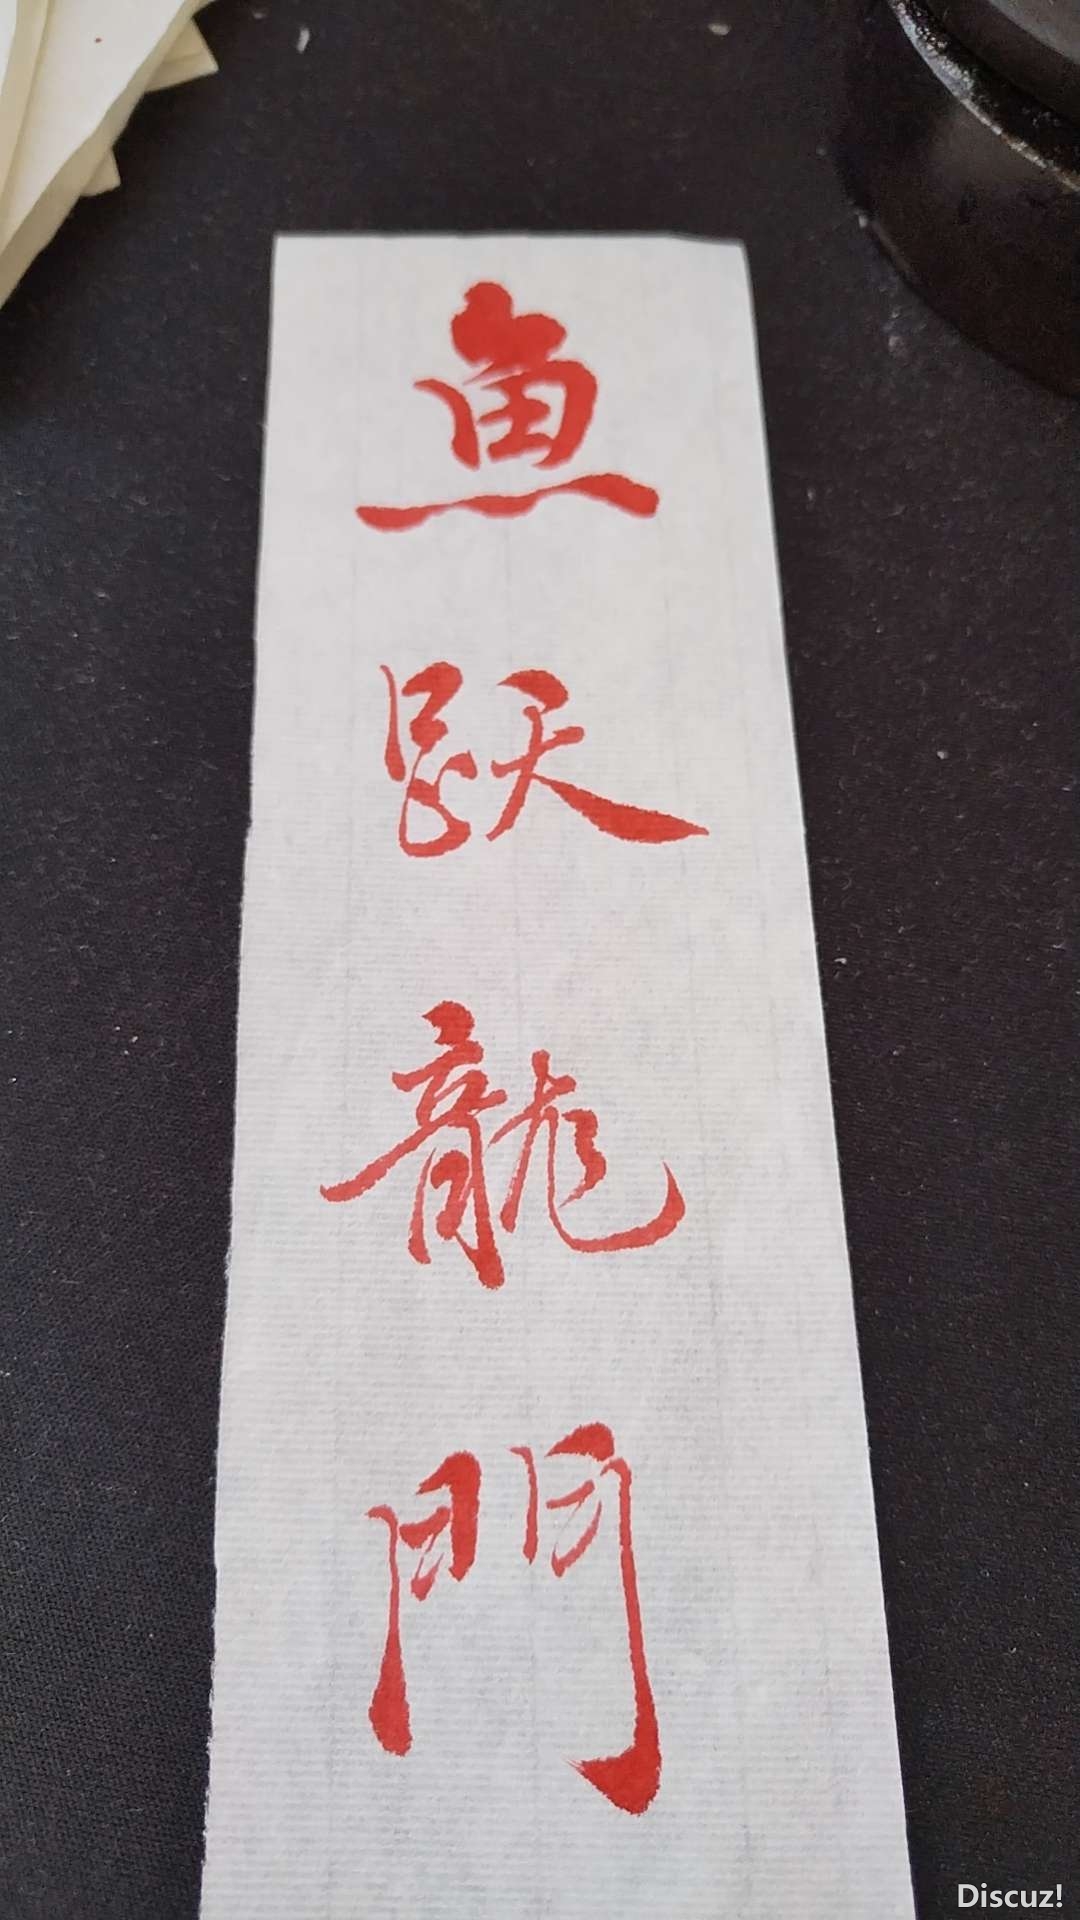 鱼跃龍門
Discuz!